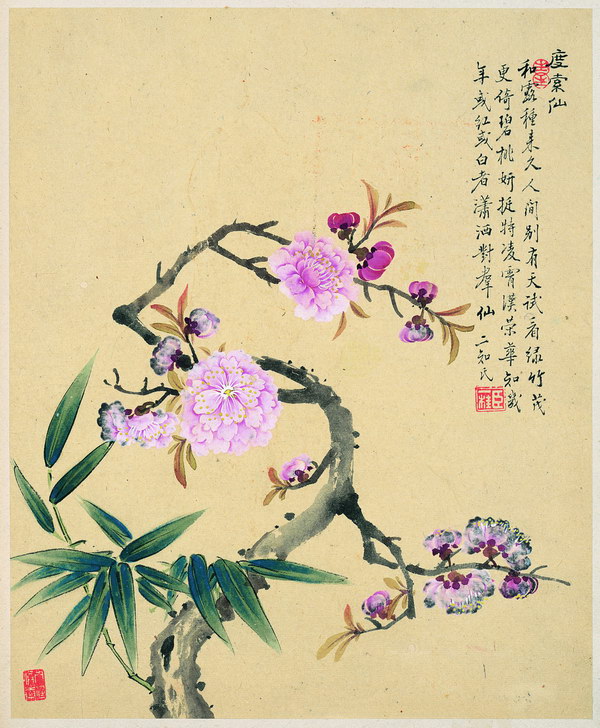 度索仙
和露種來久人間別有天試看綠竹茂
更倚碧桃妍挺特凌霄漢榮華知幾
年或紅或白者瀟洒對羣仙 二知民